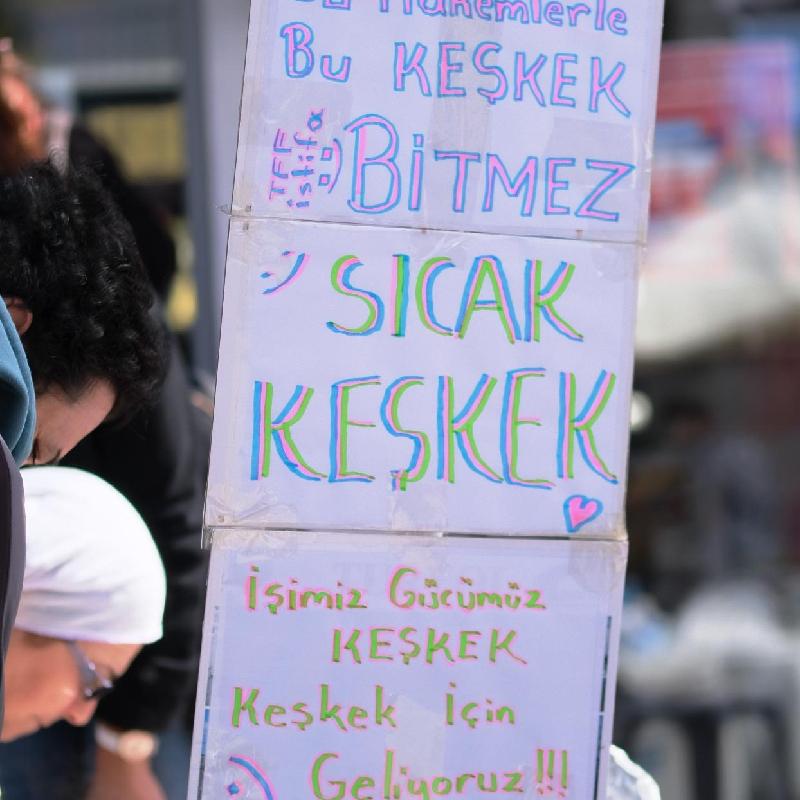 Bu Hakemlerle
Bu KEŞKEK
BİTMEZ
TFF
istifa
SICAK
KEŞKEK
İşimiz Gücümüz
KEŞKEK
Keşkek İçin
Geliyoruz!!!